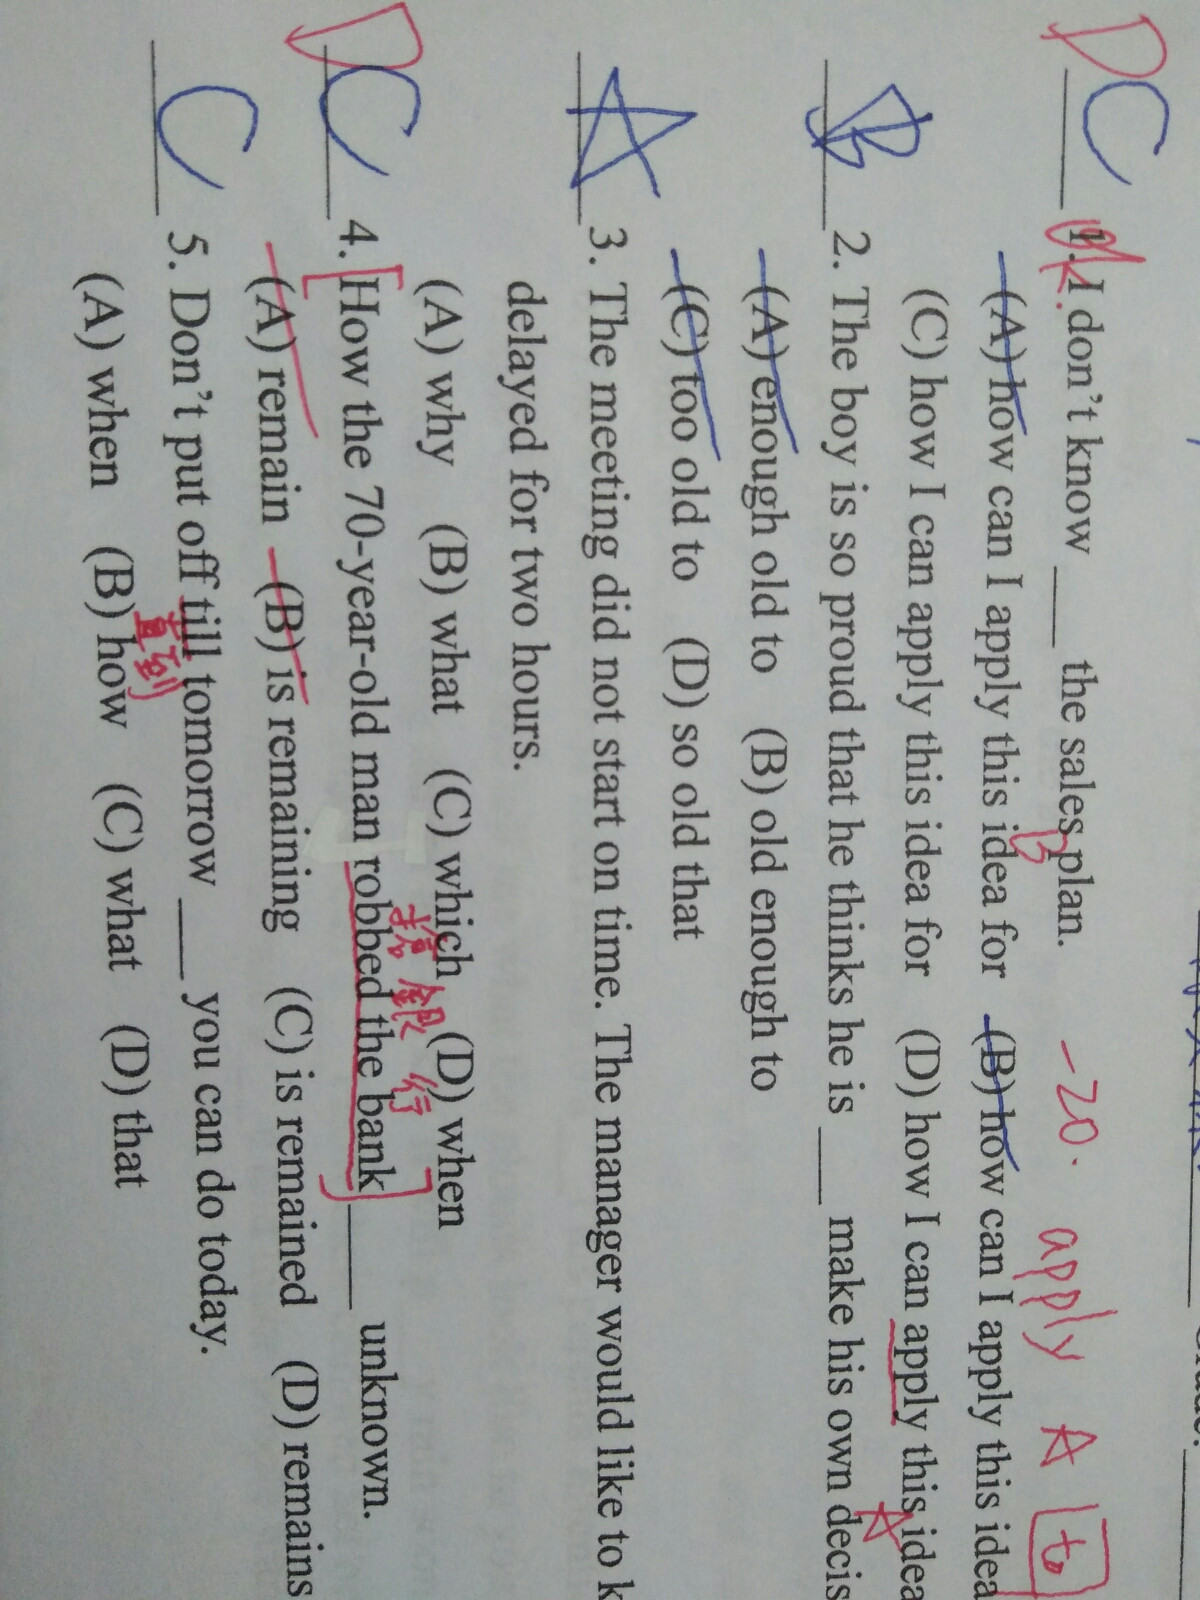 -20. apply A to
D C 1. I don't know ___ the sales plan.
B
(A) how can I apply this idea for (B) how can I apply this idea
(C) how I can apply this idea for (D) how I can apply this idea
A
B 2. The boy is so proud that he thinks he is ___ make his own decis
(A) enough old to (B) old enough to
(C) too old to (D) so old that
A 3. The meeting did not start on time. The manager would like to k
delayed for two hours.
(A) why (B) what (C) which (D) when
搶銀行
D C 4. [How the 70-year-old man robbed the bank] ___ unknown.
(A) remain (B) is remaining (C) is remained (D) remains
C 5. Don't put off till tomorrow ___ you can do today.
直到
(A) when (B) how (C) what (D) that